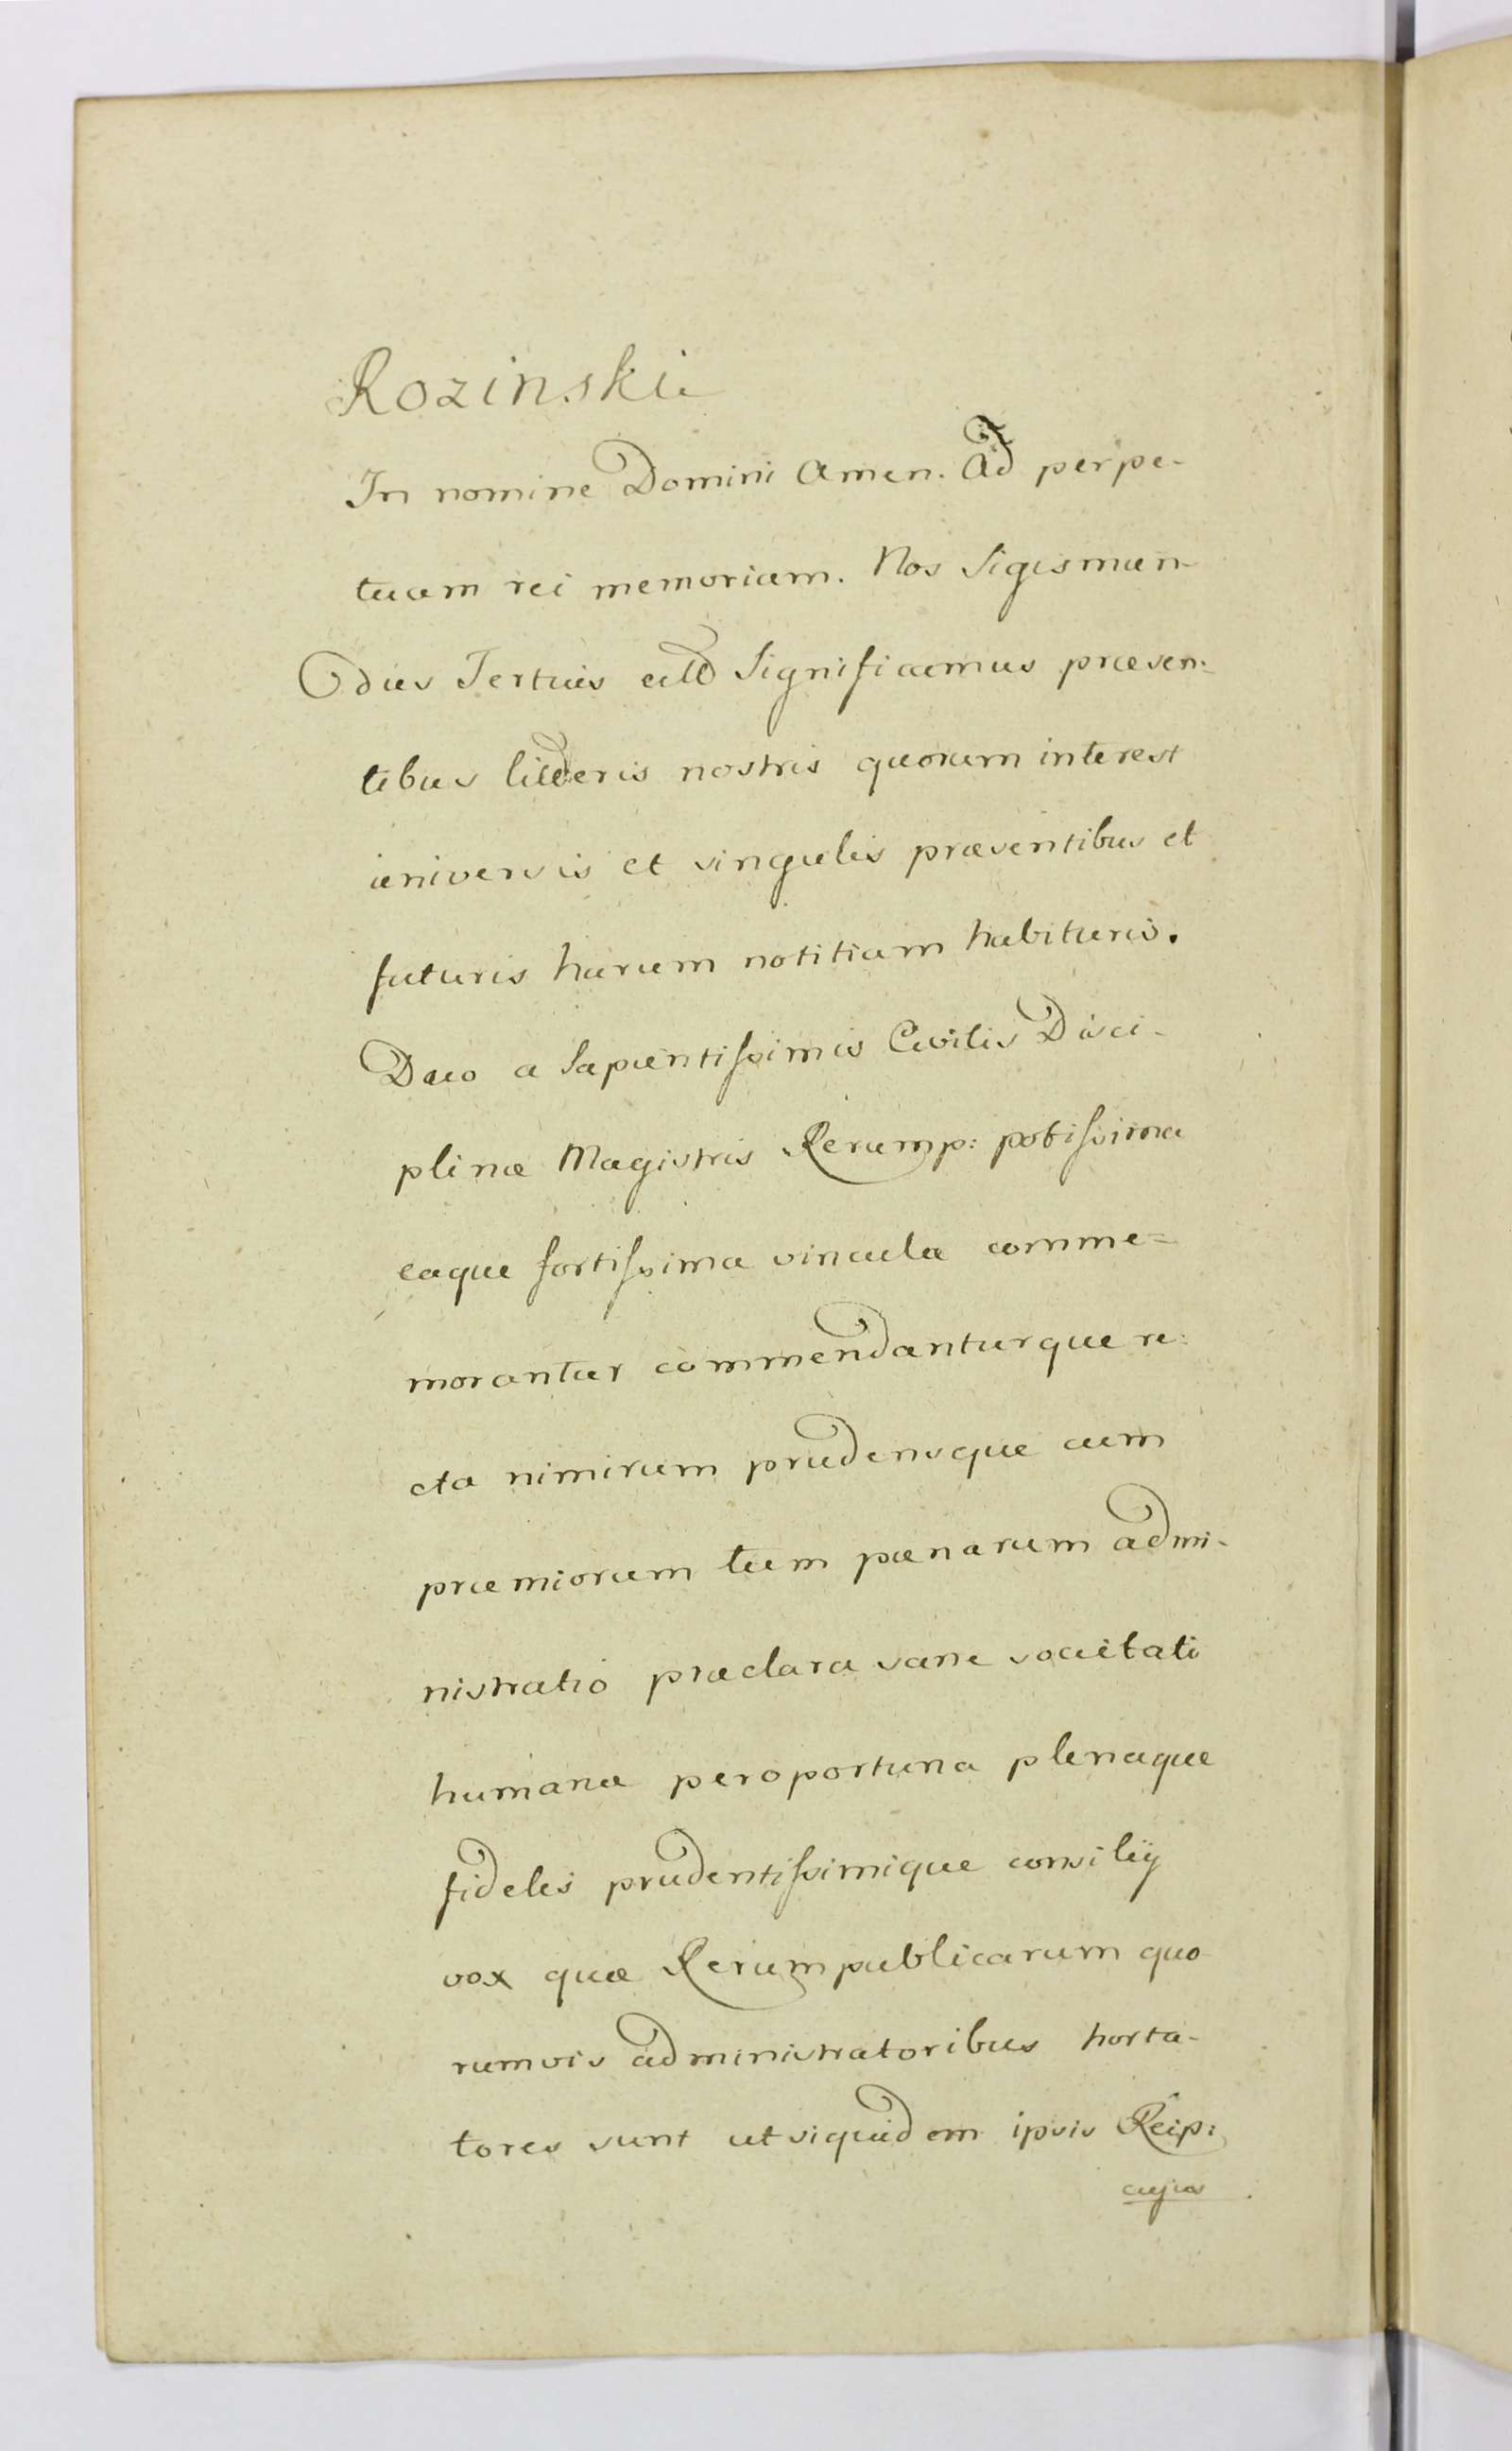 Rozinski
In nomine Domini Amen. Ad perpe-
tuam rei memoriam. Nos Sigismun-
dus Tertius etc Significamus præsen-
tibus litteris nostris quorum interest
universis et singulis præsentibus et
futuris harum notitiam habituris.
Duo a Sapientissimis Civilis Disci-
plinæ Magistris Rerump: potissima
eaque fortissima vincula comme=
morantur commendanturque re:
cta nimirum prudensque cum
præmiorum tum pœnarum admi-
nistratio præclara sane societati
humanæ peroportuna plenaque
fidelis prudentissimique consilÿ
vox quæ Rerumpublicarum quo
rumvis administratoribus horta-
tores sunt ut siquidem ipsis Reip:
cujus